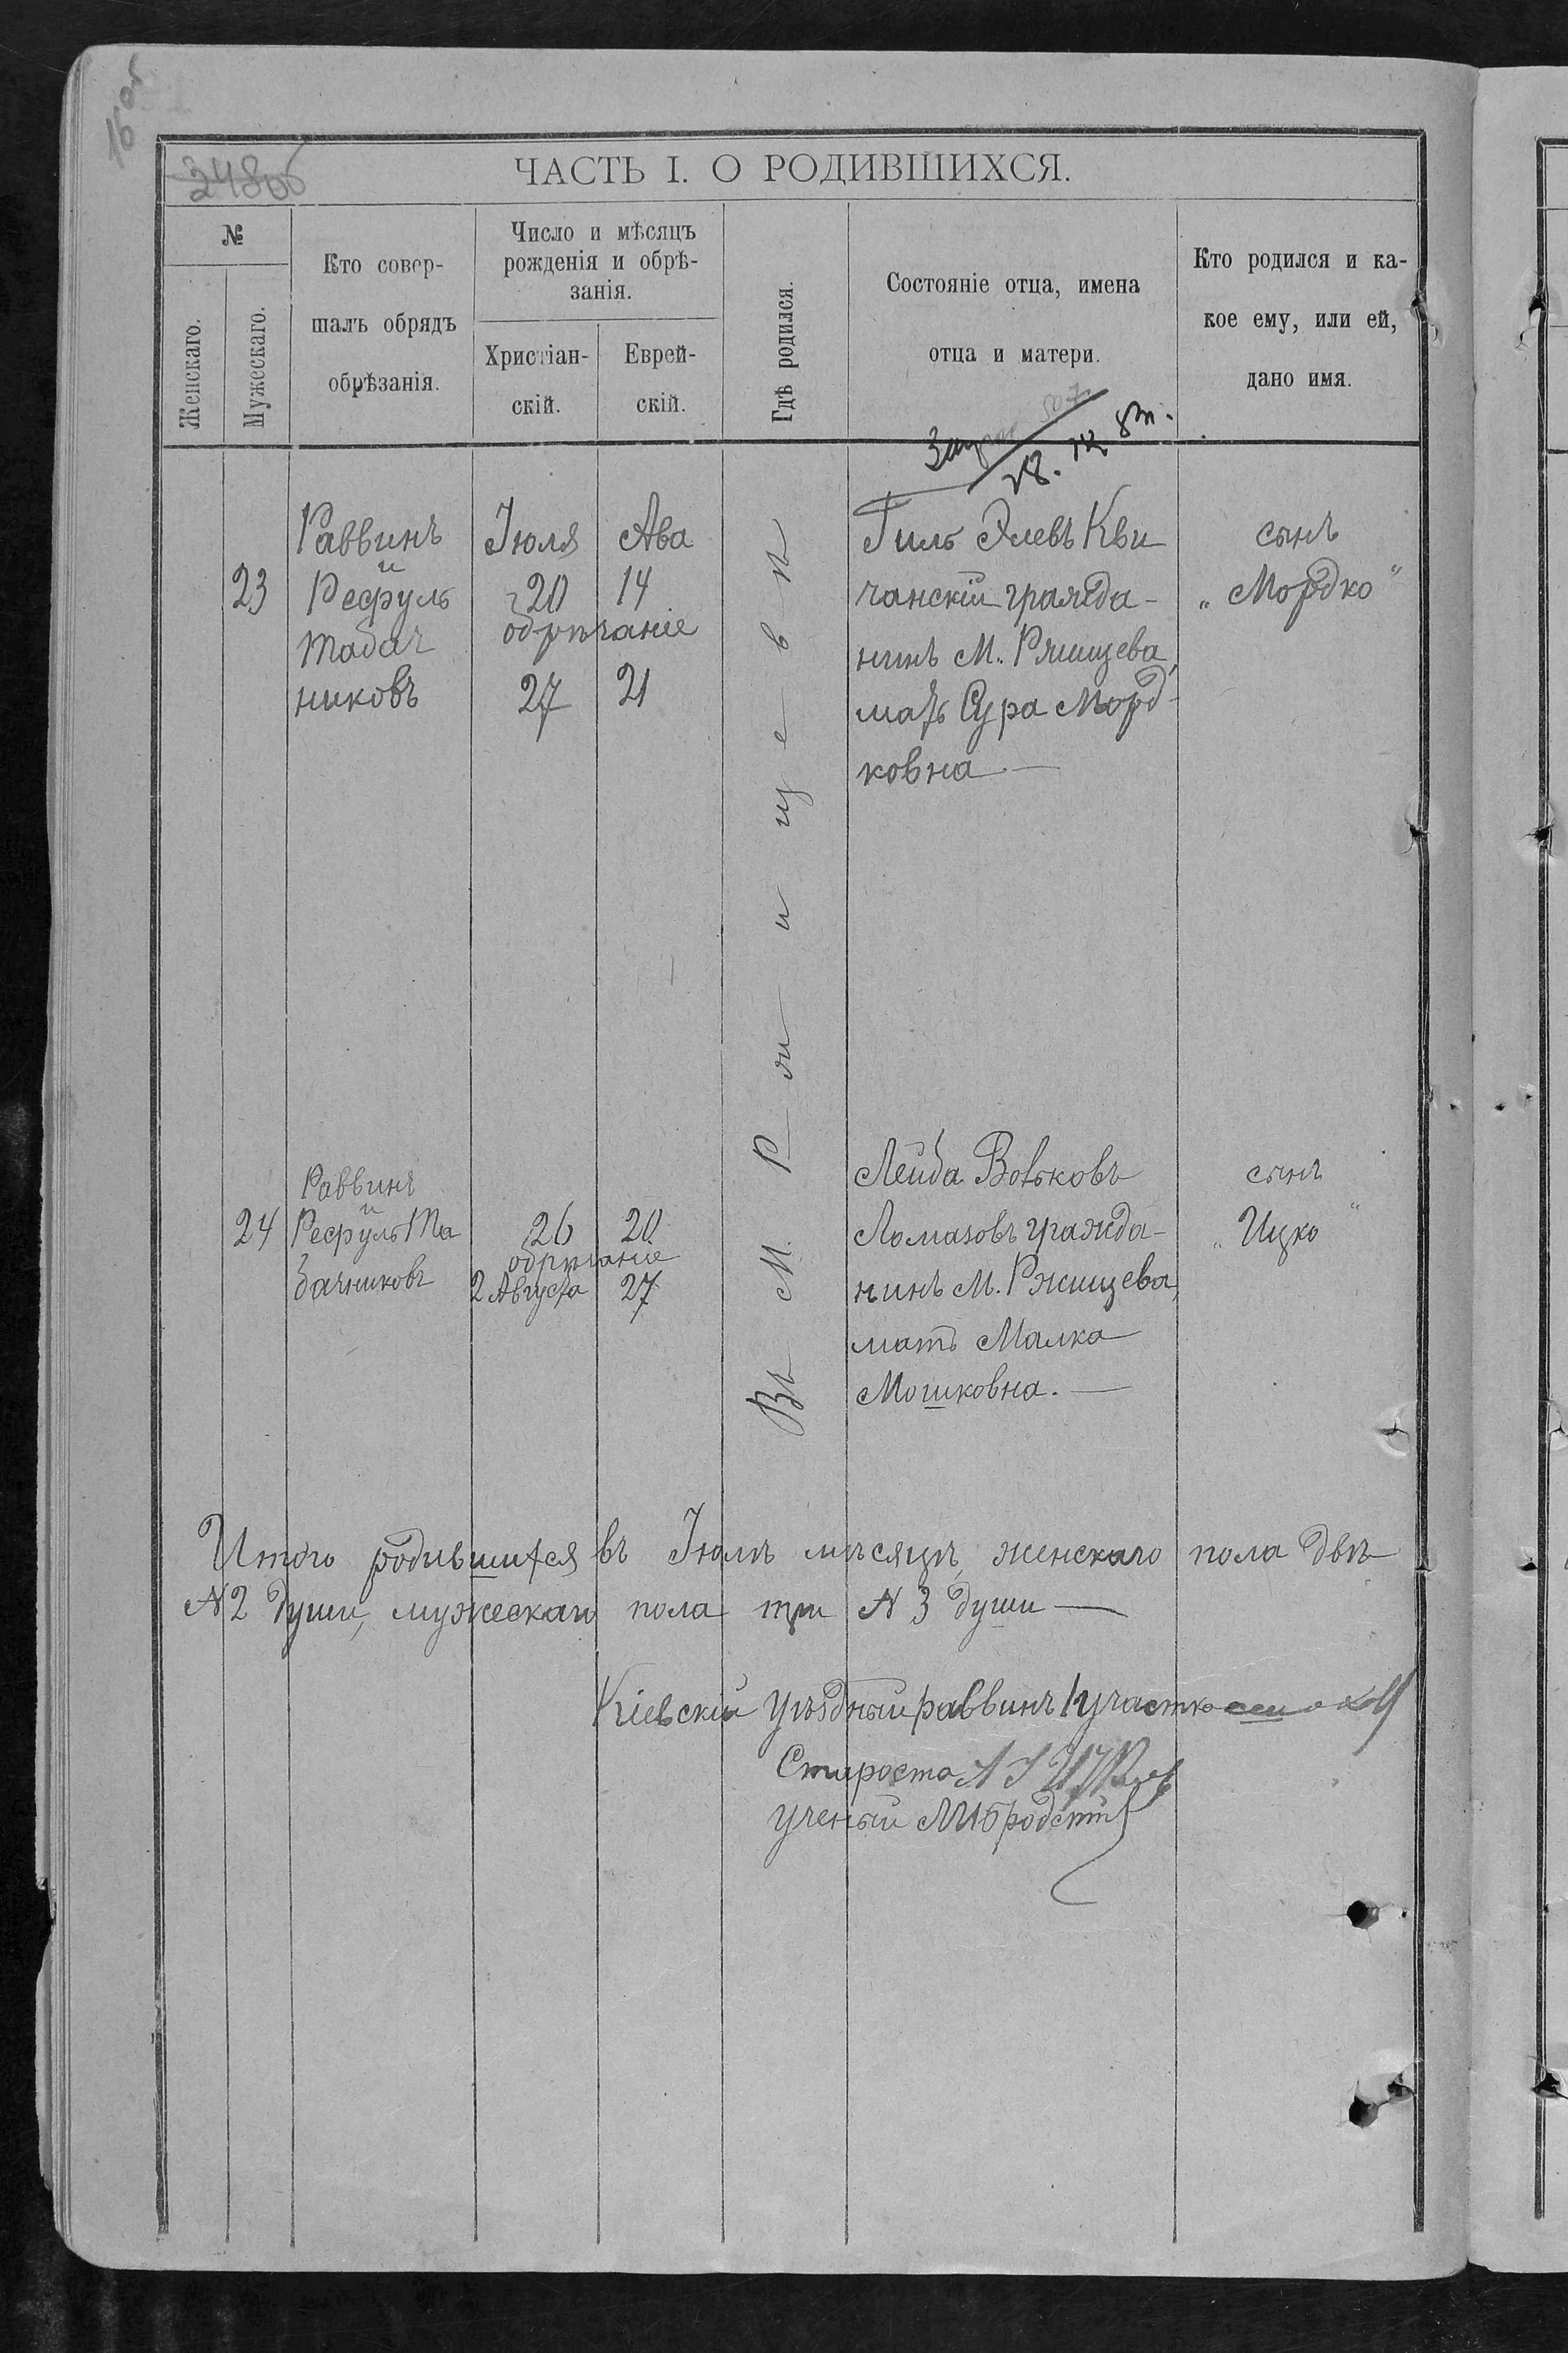 16 об
248об
ЧАСТЬ I. О РОДИВШИХСЯ.
№
Женскаго.
Мужескаго.
Кто совер-
шалъ обрядъ
обрѣзанія.
Число и мѣсяцъ
рожденія и обрѣ-
занія.
Христіан-
скій.
Еврей-
скій.
Гдѣ родился.
Состояніе отца, имена
отца и матери.
Кто родился и ка-
кое ему, или ей,
дано имя.
23
Раввинъ
и
Рефуль
Табач
никовъ
Іюля
20
обрѣзаніе
27
Ава
14
21
Въ М. Ржищевѣ
Гиль Элевъ Кви
чанскій гражда-
нинъ М. Ржищева,
мать Сура Морд-
ковна —
сынъ
„Мордко"
24
Раввинъ
и
Рефуль Та
бачниковъ
26
обрѣзаніе
2 Августа
20
27
Лейба Вольковъ
Ломазовъ гражда-
нинъ М. Ржищева,
мать Малка
Мошковна. —
сынъ
„Ицко"
Итого родившихся въ Іюлѣ мѣсяцѣ, женскаго пола двѣ
№ 2 души, мужескаго пола три № 3 души —
Кіевскій Уѣздный раввинъ 1 участка
Староста
Ученый